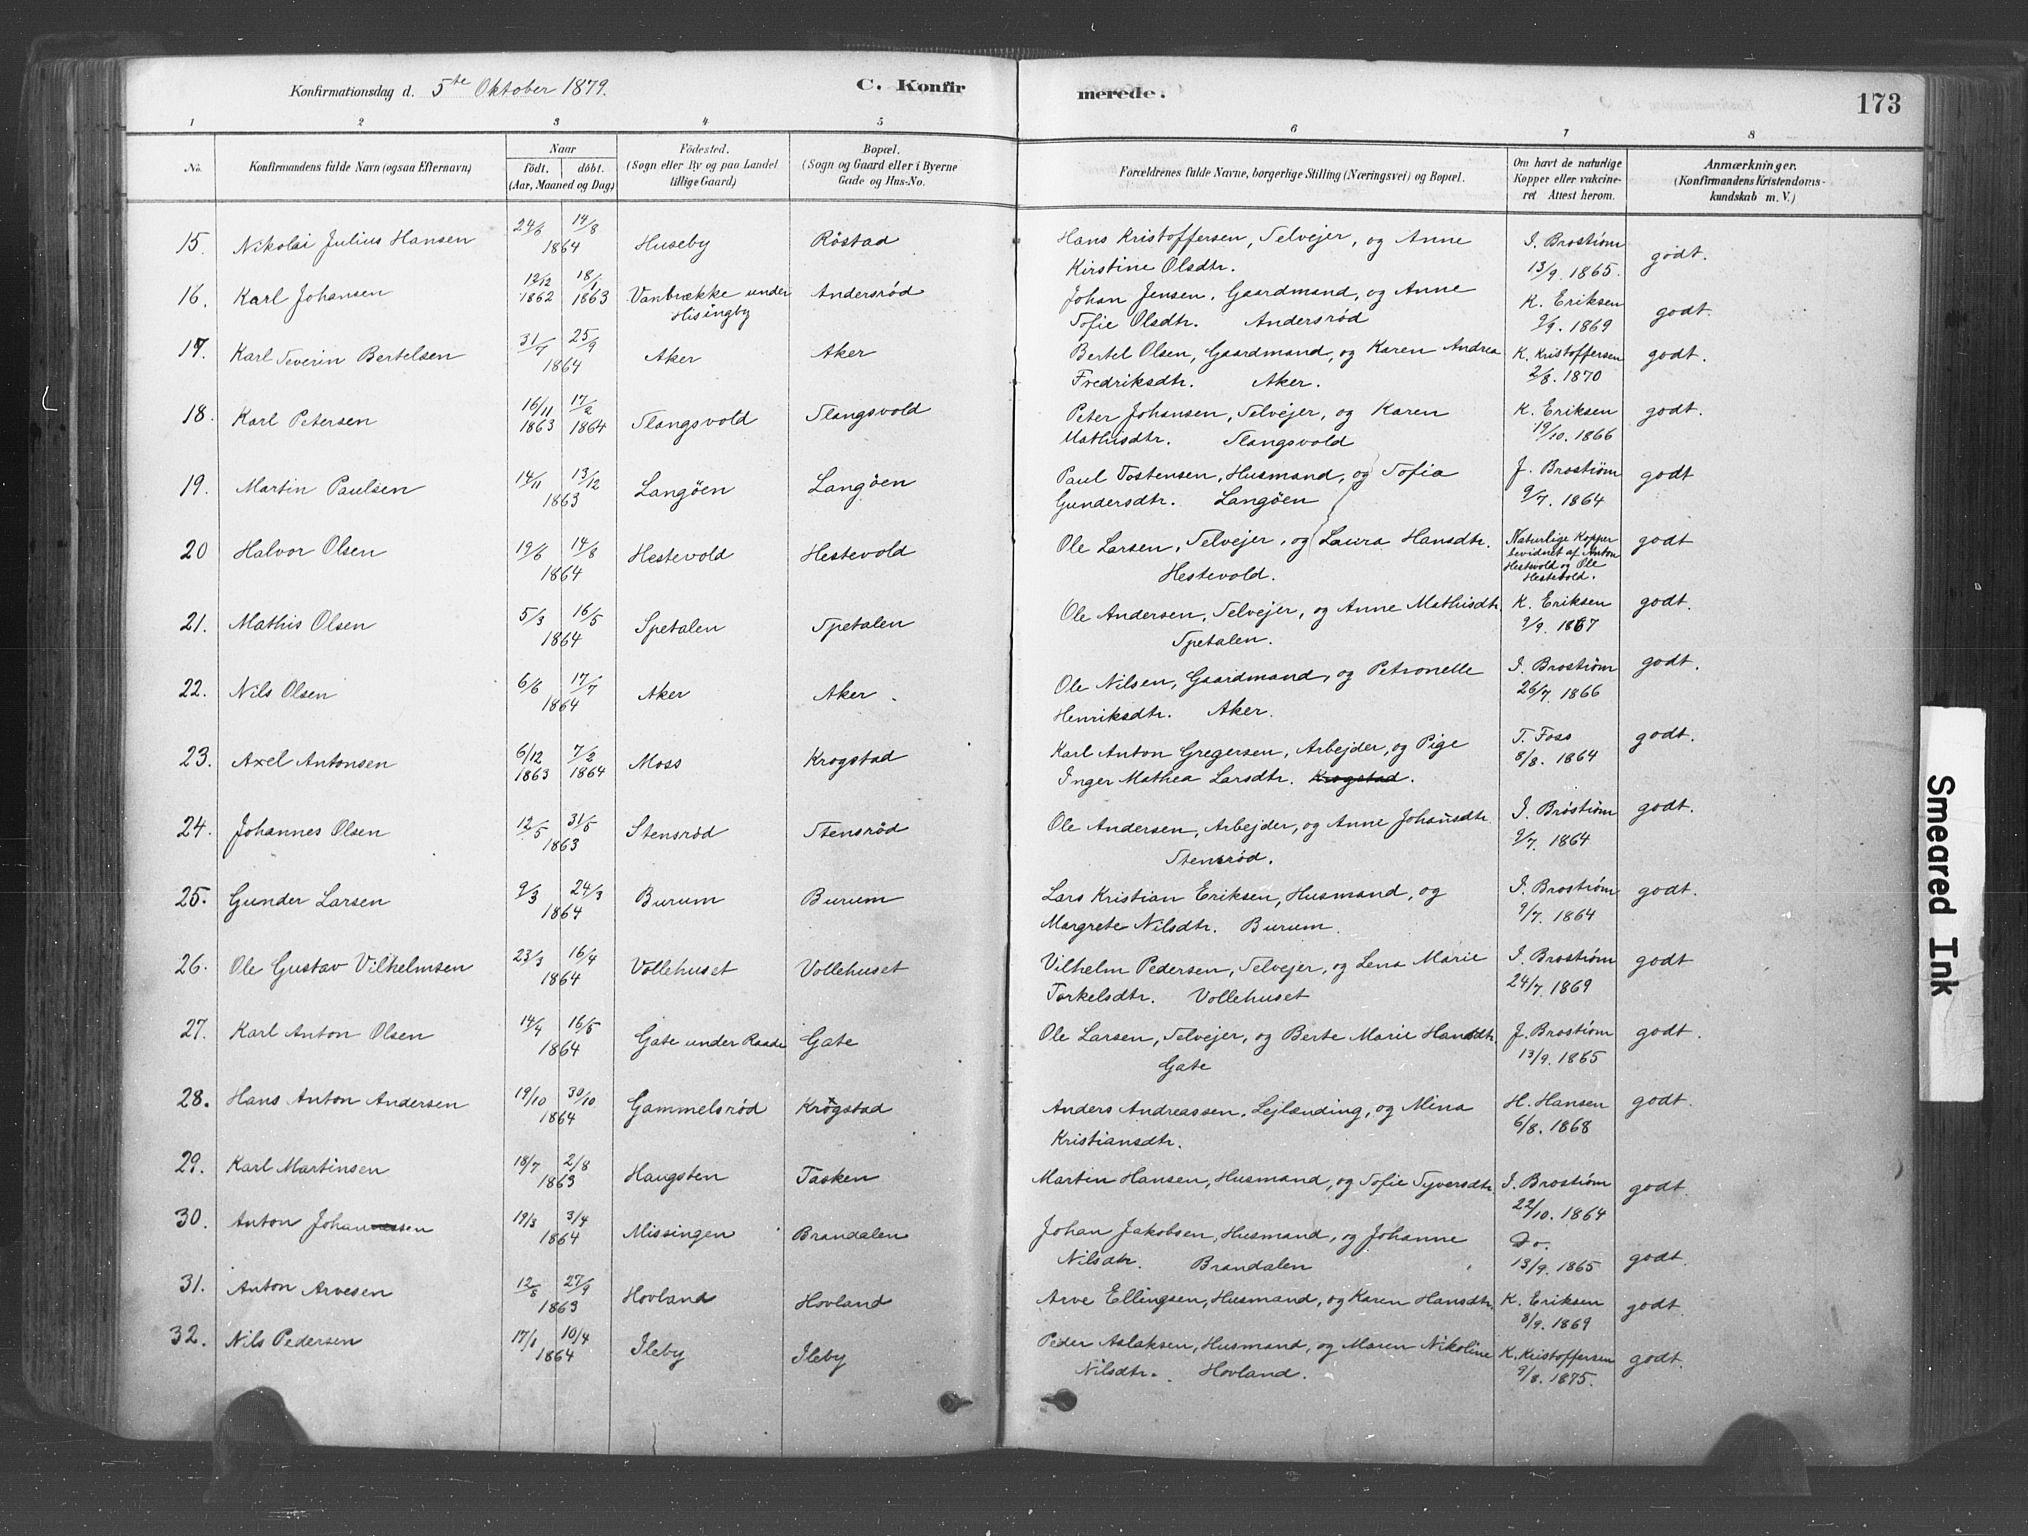 Konfirmationsdag d. 5te Oktober 1879. C. Konfirmerede. 173
1 2 3 4 5 6 7 8
No. Konfirmandens fulde Navn (ogsaa Efternavn) Naar födt. döbt. (Aar, Maaned og Dag) Födested. (Sogn eller By og paa Landet tillige Gaard) Bopæl. (Sogn og Gaard eller i Byerne Gade og Hus-No. Forældrenes fulde Navne, borgerlige Stilling (Næringsvei) og Bopæl. Om havt de naturlige Kopper eller vakcineret Attest herom. Anmærkninger. (Konfirmandens Kristendomskundskab m. V.)
15. Nikolai Julius Hansen 24/6 14/8 1864 Huseby Röstad Hans Kristoffersen, Selvejer, og Anne I. Broström godt.
Kirstine Olsdtr. 13/9. 1865.
16. Karl Johansen 12/12 1862 18/1 1863 Vanbrække under Hisingby Andersröd Johan Jensen, Gaardmand, og Anne K. Eriksen godt.
Sofie Olsdtr. Andersröd 9/9. 1869
17. Karl Severin Bertelsen 31/7 25/9 1864 Aker Aker Bertel Olsen, Gaardmand, og Karen Andrea K. Kristoffersen godt.
Fredriksdtr. Aker. 2/8. 1870
18. Karl Petersen 16/11 1863 17/2 1864 Slangsvold Slangsvold Peter Johansen, Selvejer, og Karen K. Eriksen godt.
Mathisdtr. Slangsvold 19/10. 1866
19. Martin Paulsen 14/11 13/12 1863 Langöen Langöen Paul Tostensen, Husmand, og Sofia J. Broström godt
Gundersdtr. Langöen 9/7. 1864
20 Halvor Olsen 19/6 14/8 1864 Hestevold Hestevold Ole Larsen, Selvejer, og Laura Hansdtr. Naturlige Kopper godt
Hestevold. bevidnet af Anton Hestevold og Ole Hestevold.
21. Mathis Olsen 5/3 16/5 1864 Spetalen Spetalen Ole Andersen, Selvejer, og Anne Mathisdtr. K. Eriksen godt.
Spetalen. 9/9. 1867
22. Nils Olsen 6/6 17/7 1864 Aker Aker. Ole Nilsen, Gaardmand, og Petronelle I. Broström godt.
Henriksdtr. Aker. 26/7. 1866
23. Axel Antonsen 6/12 1863 7/2 1864 Moss Krogstad Karl Anton Gregersen, Arbejder, og Pige T. Foss godt.
Inger Mathea Larsdtr. Krogstad. 8/8. 1864
24. Johannes Olsen 12/5 31/5 1863 Stensröd Stensröd Ole Andersen, Arbejder, og Anne Johansdtr. I. Bröström godt.
Stensröd. 9/7. 1864
25. Gunder Larsen 9/3 24/3 1864 Burum Burum Lars Kristian Eriksen, Husmand, og I. Broström godt.
Margrete Nilsdtr. Burum. 9/7. 1864
26. Ole Gustav Vilhelmsen 23/3 16/4 1864 Vollehuset Vollehuset Vilhelm Pedersen, Selvejer, og Lena Marie I. Broström godt
Torkelsdtr. Vollehuset 24/7. 1869
27. Karl Anton Olsen 14/4 16/5 1864 Gate under Raade Gate Ole Larsen, Selvejer, og Berte Marie Hansdtr. J. Broström godt.
Gate 13/9. 1865
28. Hans Anton Andersen 19/10 30/10 1864 Gammelsröd Krogstad Anders Andreassen, Lejlænding, og Mina H. Hansen godt.
Kristiansdtr. 6/8. 1868
29. Karl Martinsen 18/7 2/8 1863 Haugsten Tasken Martin Hansen, Husmand, og Sofie Syversdtr. I. Broström godt.
22/10. 1864
30. Anton Johannessen 19/3 3/4 1864 Missingen Brandalen Johan Jakobsen, Husmand, og Johanne Do. godt.
Nilsdtr. Brandalen 13/9. 1865
31. Anton Arvesen 12/8 27/9 1863 Hovland Hovland Arve Ellingsen, Husmand, og Karen Hansdtr. K. Eriksen godt
8/9. 1869
32. Nils Pedersen 17/1 10/4 1864 Ileby Ileby Peder Aslaksen, Husmand, og Maren Nikoline K. Kristoffersen godt.
Nilsdtr. Hovland. 9/8. 1875.
Smeared Ink